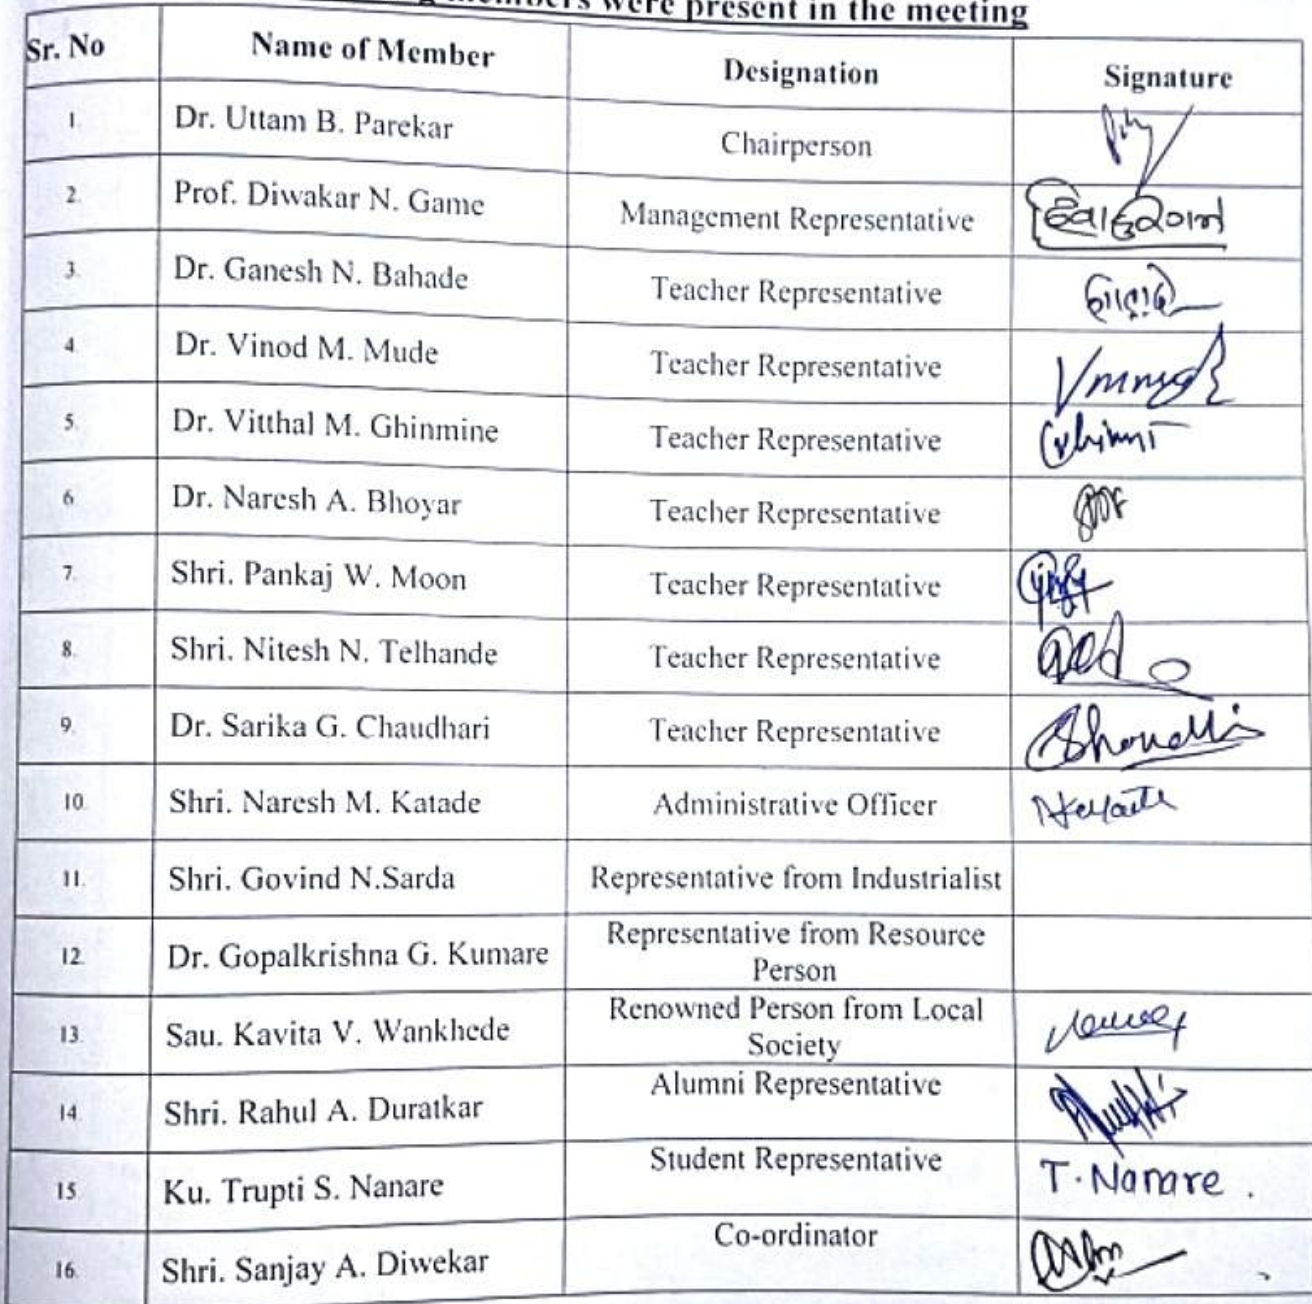 members were present in the meeting
Sr. No Name of Member Designation Signature
1. Dr. Uttam B. Parekar Chairperson
2. Prof. Diwakar N. Game Management Representative
3. Dr. Ganesh N. Bahade Teacher Representative
4. Dr. Vinod M. Mude Teacher Representative
5. Dr. Vitthal M. Ghinmine Teacher Representative
6 Dr. Naresh A. Bhoyar Teacher Representative
7. Shri. Pankaj W. Moon Teacher Representative
8. Shri. Nitesh N. Telhande Teacher Representative
9. Dr. Sarika G. Chaudhari Teacher Representative
10. Shri. Naresh M. Katade Administrative Officer
11. Shri. Govind N.Sarda Representative from Industrialist
12. Dr. Gopalkrishna G. Kumare Representative from Resource
Person
13 Sau. Kavita V. Wankhede Renowned Person from Local
Society
14 Shri. Rahul A. Duratkar Alumni Representative
15 Ku. Trupti S. Nanare Student Representative T. Nanare.
16. Shri. Sanjay A. Diwekar Co-ordinator